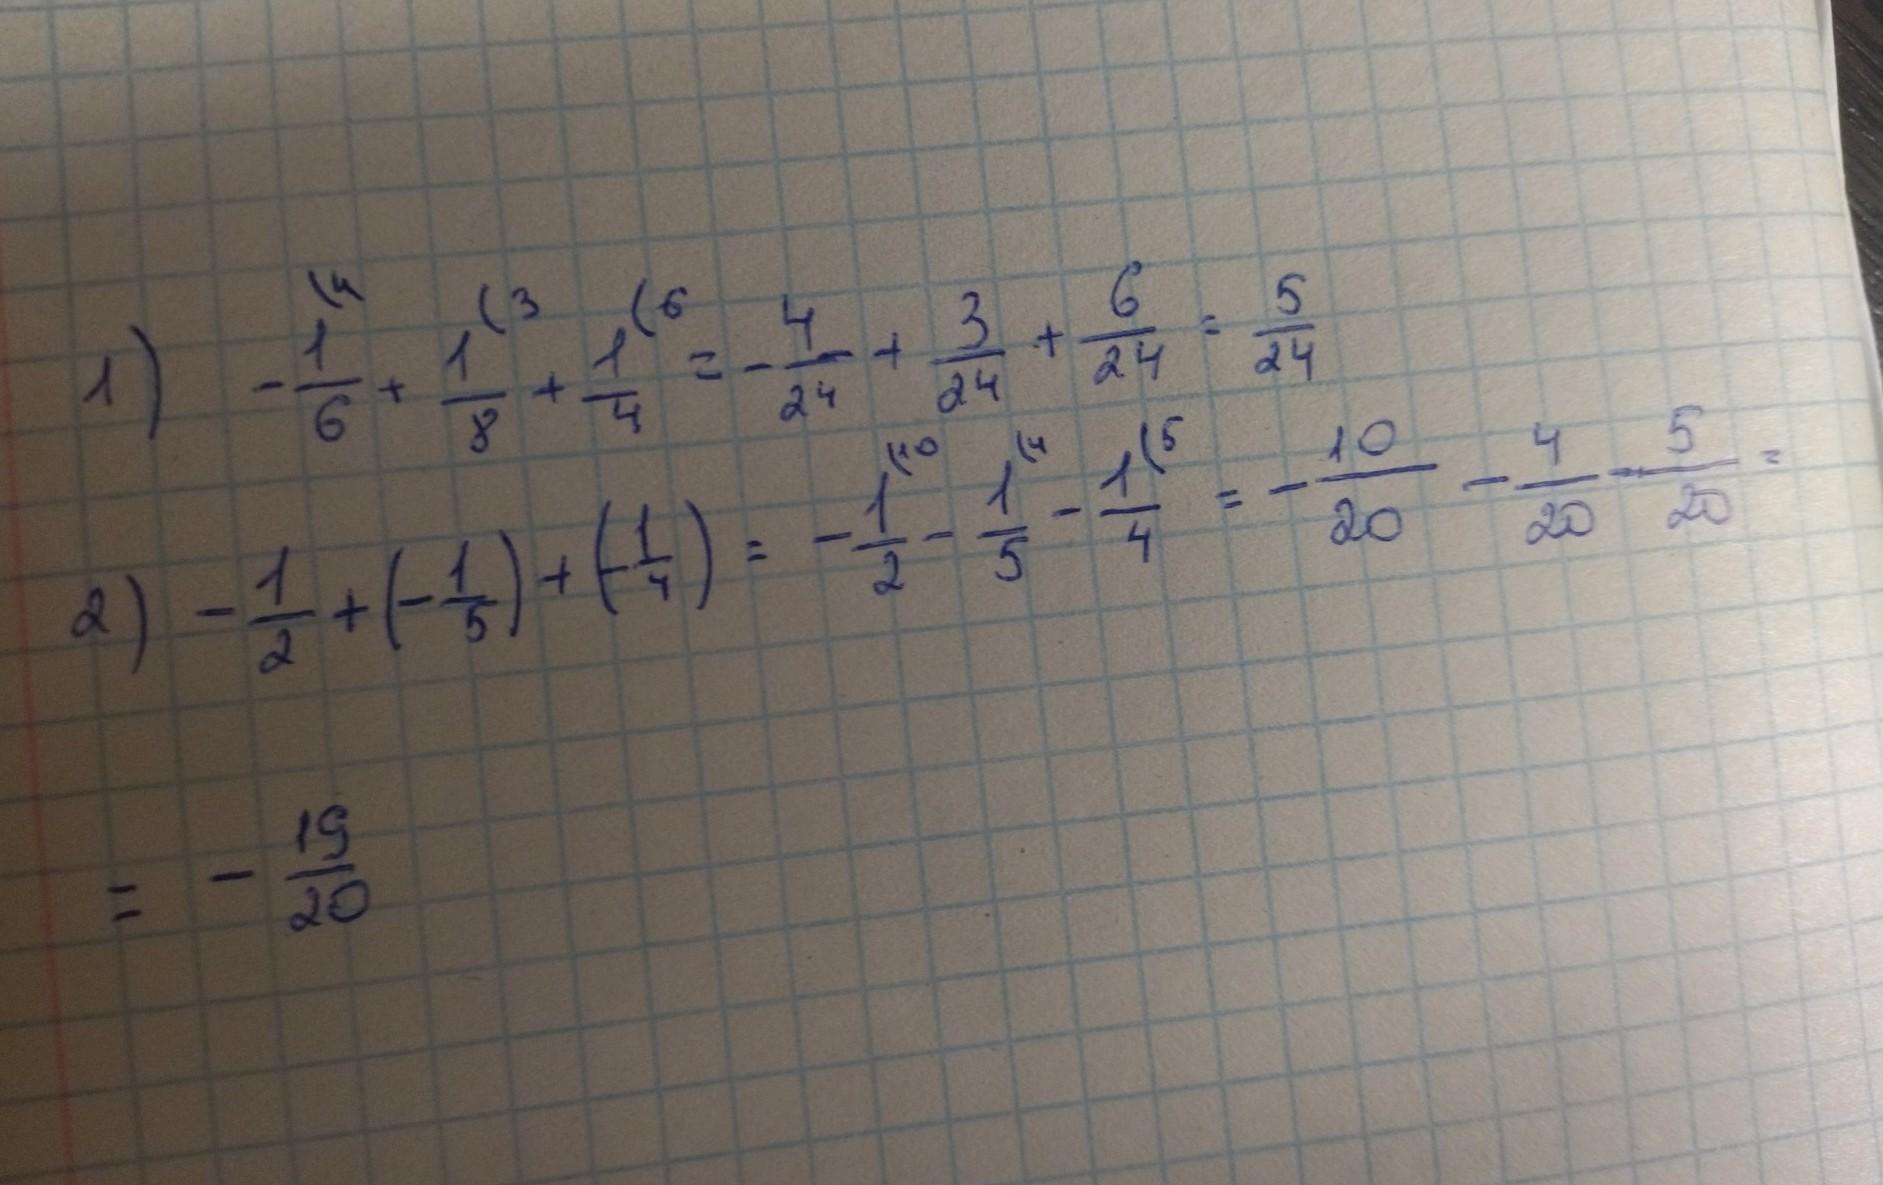 1) -1/6 (4 + 1/8 (3 + 1/4 (6 = -4/24 + 3/24 + 6/24 = 5/24
2) -1/2 + (-1/5) + (-1/4) = -1/2 (10 - 1/5 (4 - 1/4 (5 = -10/20 - 4/20 - 5/20 =
= -19/20